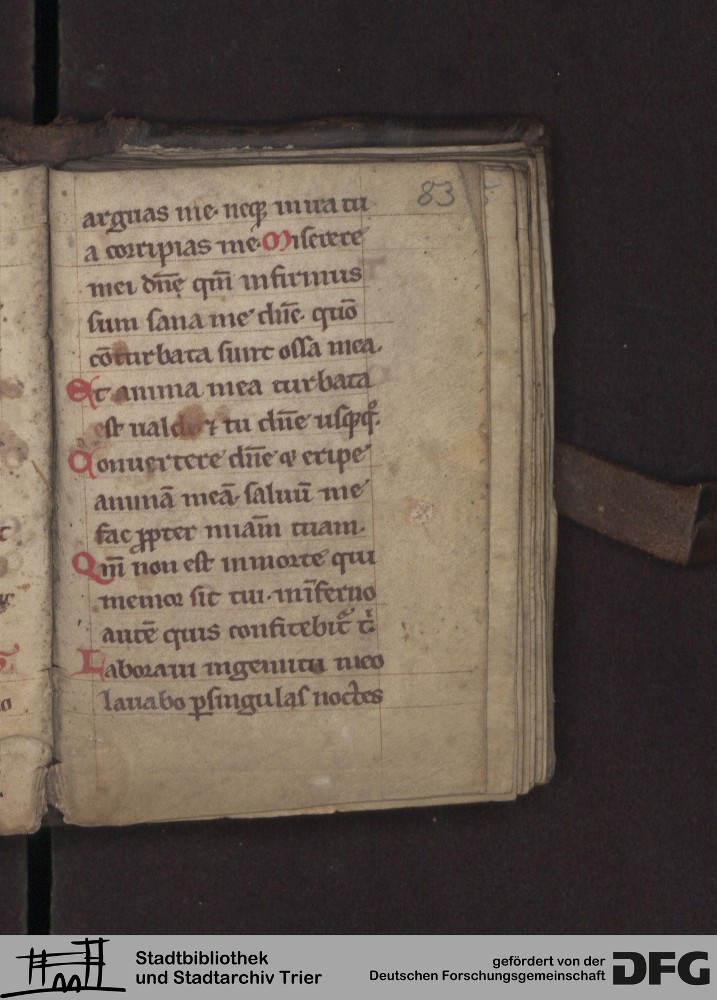 83
arguas me· neq; in ira tu
a corripias me· Miserere
mei dn̄e qm̄ infirmus
sum sana me dn̄e· qm̄
cōturbata sunt ossa mea·
Et anima mea turbata
est ualde ⁊ tu dn̄e usq;q°·
Conuertere dn̄e & eripe
animā meā· saluū me
fac ꝓpter mīam tuam·
Qm̄ non est in morte qui
memor sit tui· in īferno
autē quis confitebit᷑ t̄
Laboraui in gemitu meo
lauabo ꝑ singulas noctes
Stadtbibliothek
und Stadtarchiv Trier
gefördert von der
Deutschen Forschungsgemeinschaft
DFG